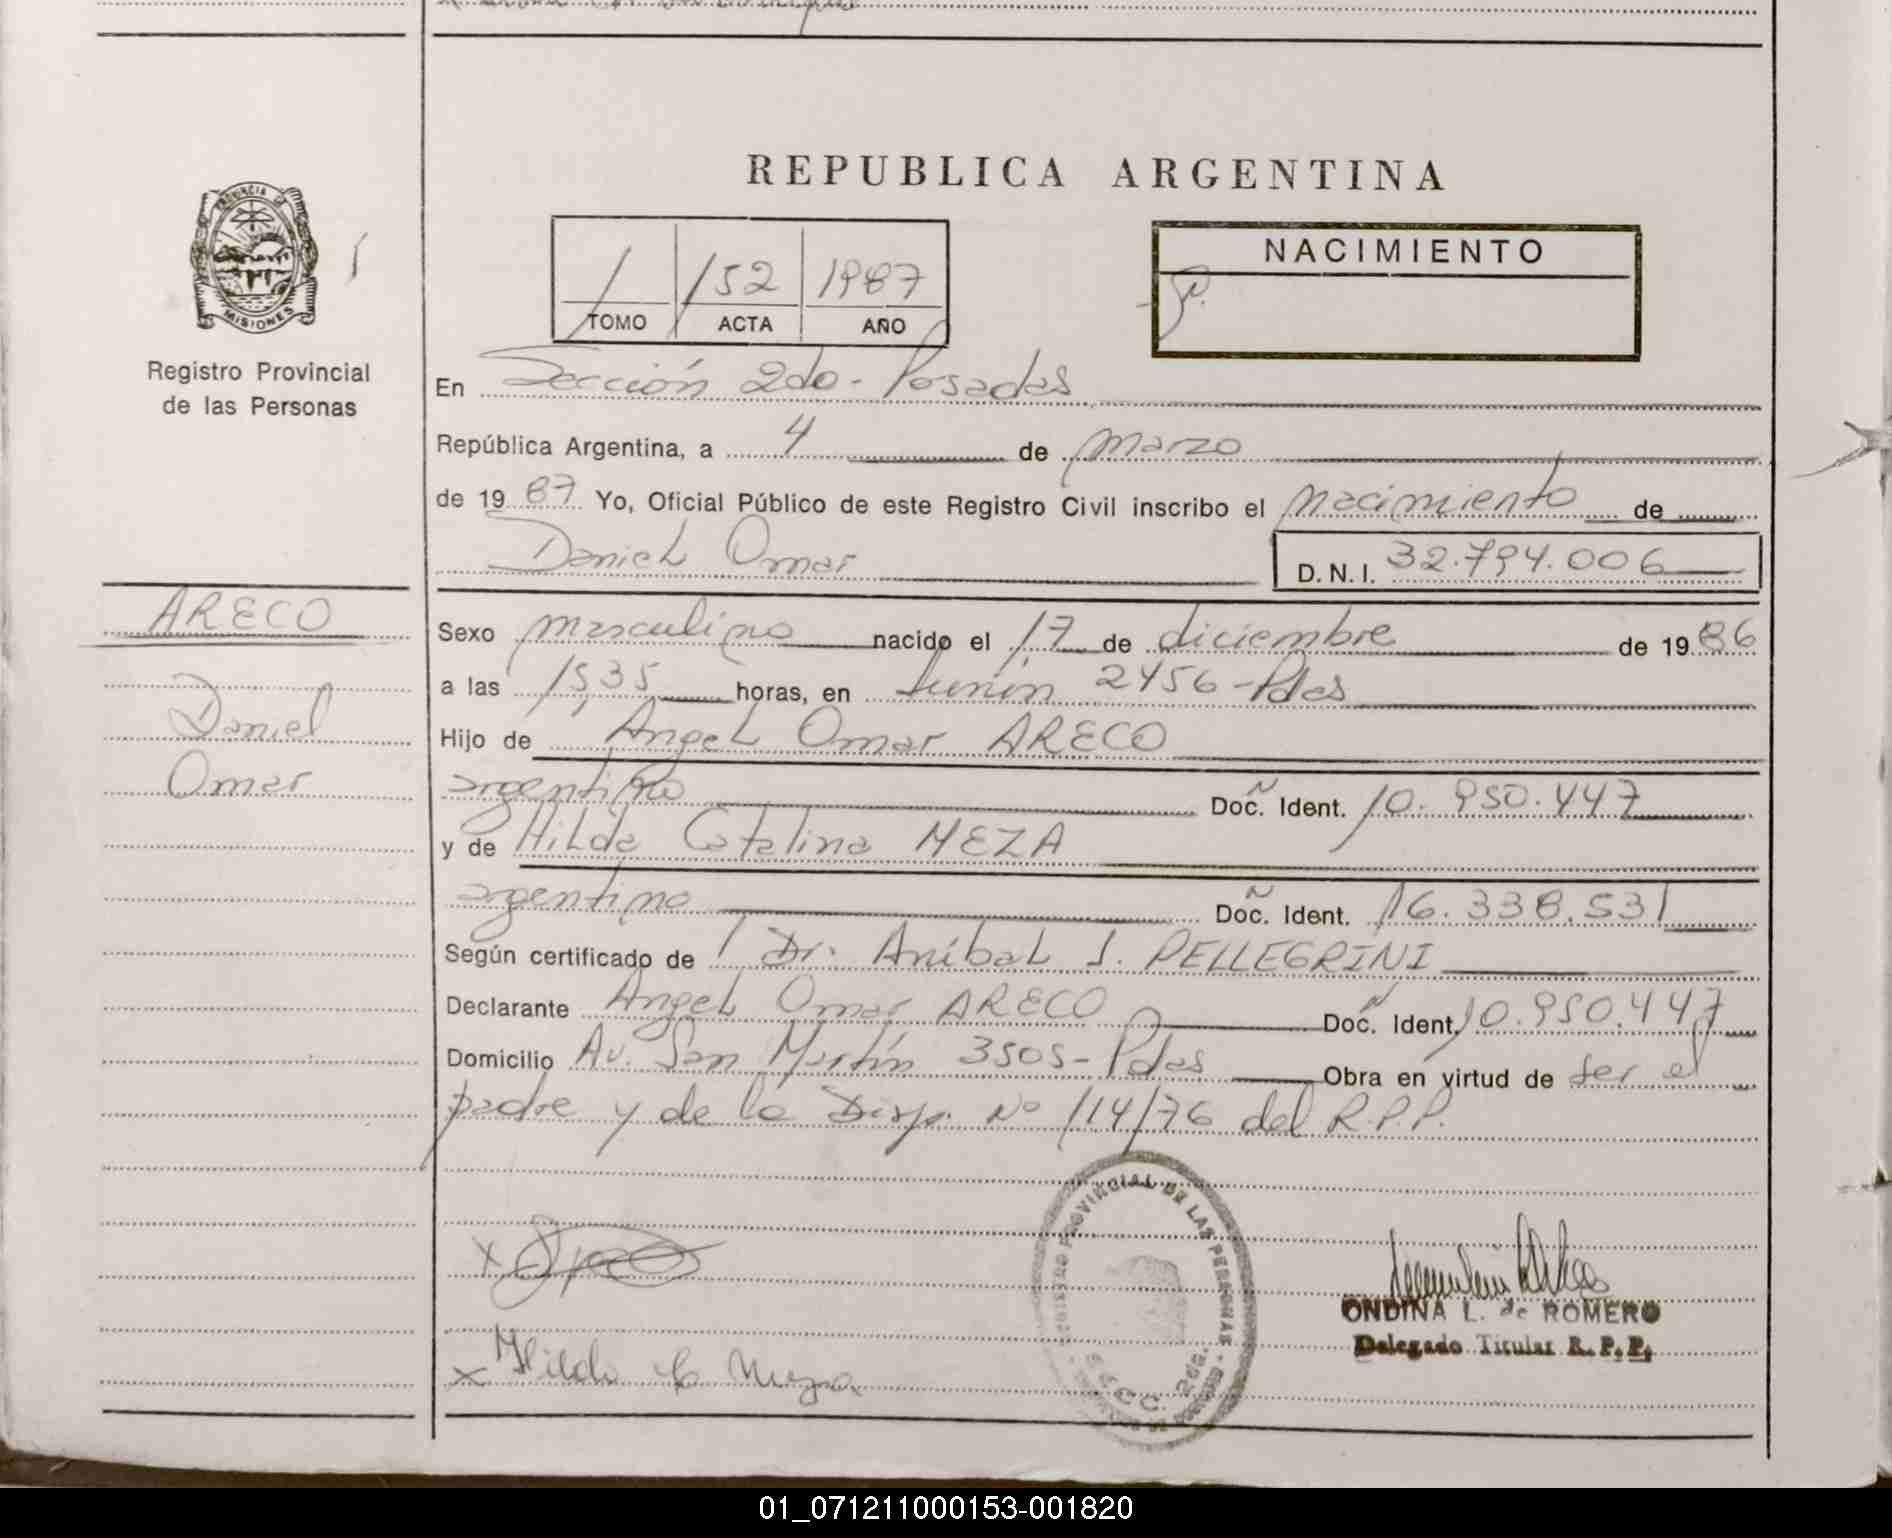 REPUBLICA ARGENTINA
PROVINCIA DE
MISIONES
Registro Provincial
de las Personas
1 152 1987
TOMO ACTA AÑO
NACIMIENTO
En Sección 2do - Posadas
República Argentina, a 4 de marzo
de 1987 Yo, Oficial Público de este Registro Civil inscribo el nacimiento de
Daniel Omar D.N.I. 32.794.006
ARECO
Daniel
Omar
Sexo masculino nacido el 17 de diciembre de 1986
a las 15,35 horas, en Junín 2456 - Pdas
Hijo de Angel Omar ARECO
argentino Doc. Ident. 10.950.447
y de Hilda Catalina MEZA
argentina Doc. Ident. 16.338.531
Según certificado de Dr. Aníbal J. PELLEGRINI
Declarante Angel Omar ARECO Doc. Ident. 10.950.447
Domicilio Av. San Martín 3505 - Pdas Obra en virtud de ser el
padre y de la Disp. Nº 114/76 del R.P.P.
REGISTRO PROVINCIAL DE LAS PERSONAS
SECC. 2da.
ONDINA L. de ROMERO
Delegado Titular R. P. P.
x
x Hilda C Meza
01_071211000153-001820